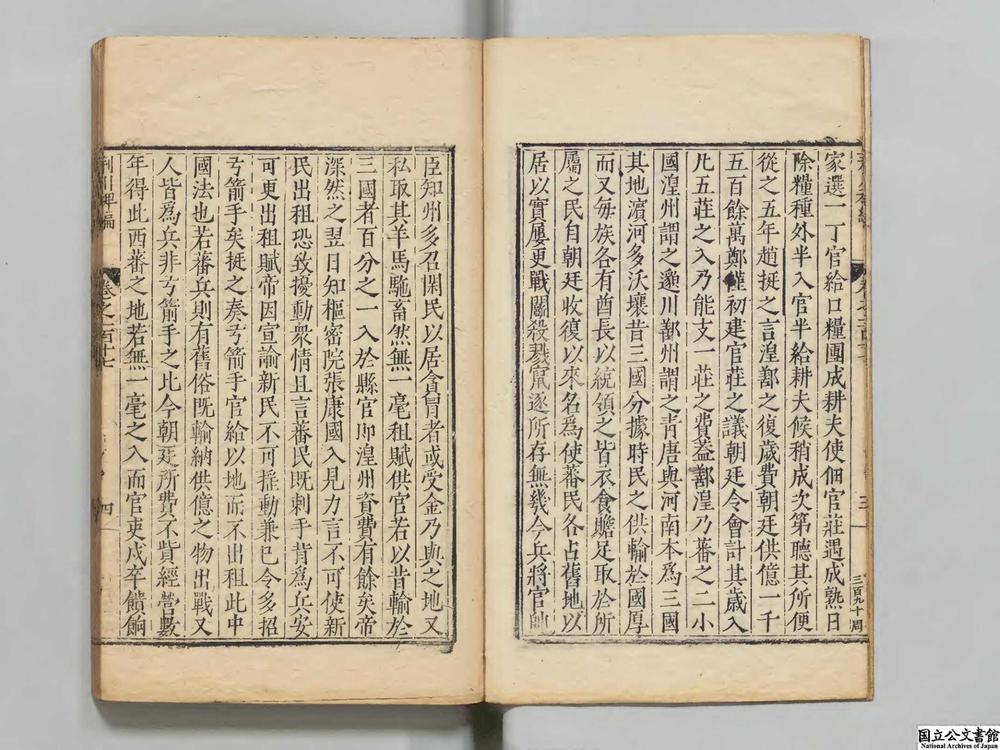 家選一丁官給口糧團成耕夫使佃官莊遇成熟日
除糧種外半入官半給耕夫候稍成次第聽其所便
從之五年趙挺之言湟鄯之復歲費朝廷供億一千
五百餘萬鄭僅初建官莊之議朝廷令會計其歲入
凡五莊之入乃能支一莊之費蓋鄯湟乃蕃之二小
國湟州謂之邈川鄯州謂之青唐與河南本為三國
其地濱河多沃壤昔三國分據時民之供輸於國厚
而又每族各有酋長以統領之皆衣食贍足取於所
屬之民自朝廷收復以來名為使蕃民各占舊地以
居以實屢更戰鬬殺戮竄逐所存無幾今兵將官帥
三百九十 周
臣知州多召閑民以居貪冒者或受金乃與之地又
私取其羊馬駞畜然無一毫租賦供官若以昔輸於
三國者百分之一入於縣官即湟州資費有餘矣帝
深然之翌日知樞密院張康國入見力言不可使新
民出租恐致擾動衆情且言蕃民既刺手背為兵安
可更出租賦帝因宣諭新民不可揺動兼已令多招
弓箭手矣挺之奏弓箭手官給以地而不出租此中
國法也若蕃兵則有舊俗既輸納供億之物出戰又
人皆為兵非弓箭手之比今朝廷所費不貲經營數
年得此西蕃之地若無一毫之入而官吏戍卒饋餉
荆川稗編
卷之一百十七
四
国立公文書館
National Archives of Japan